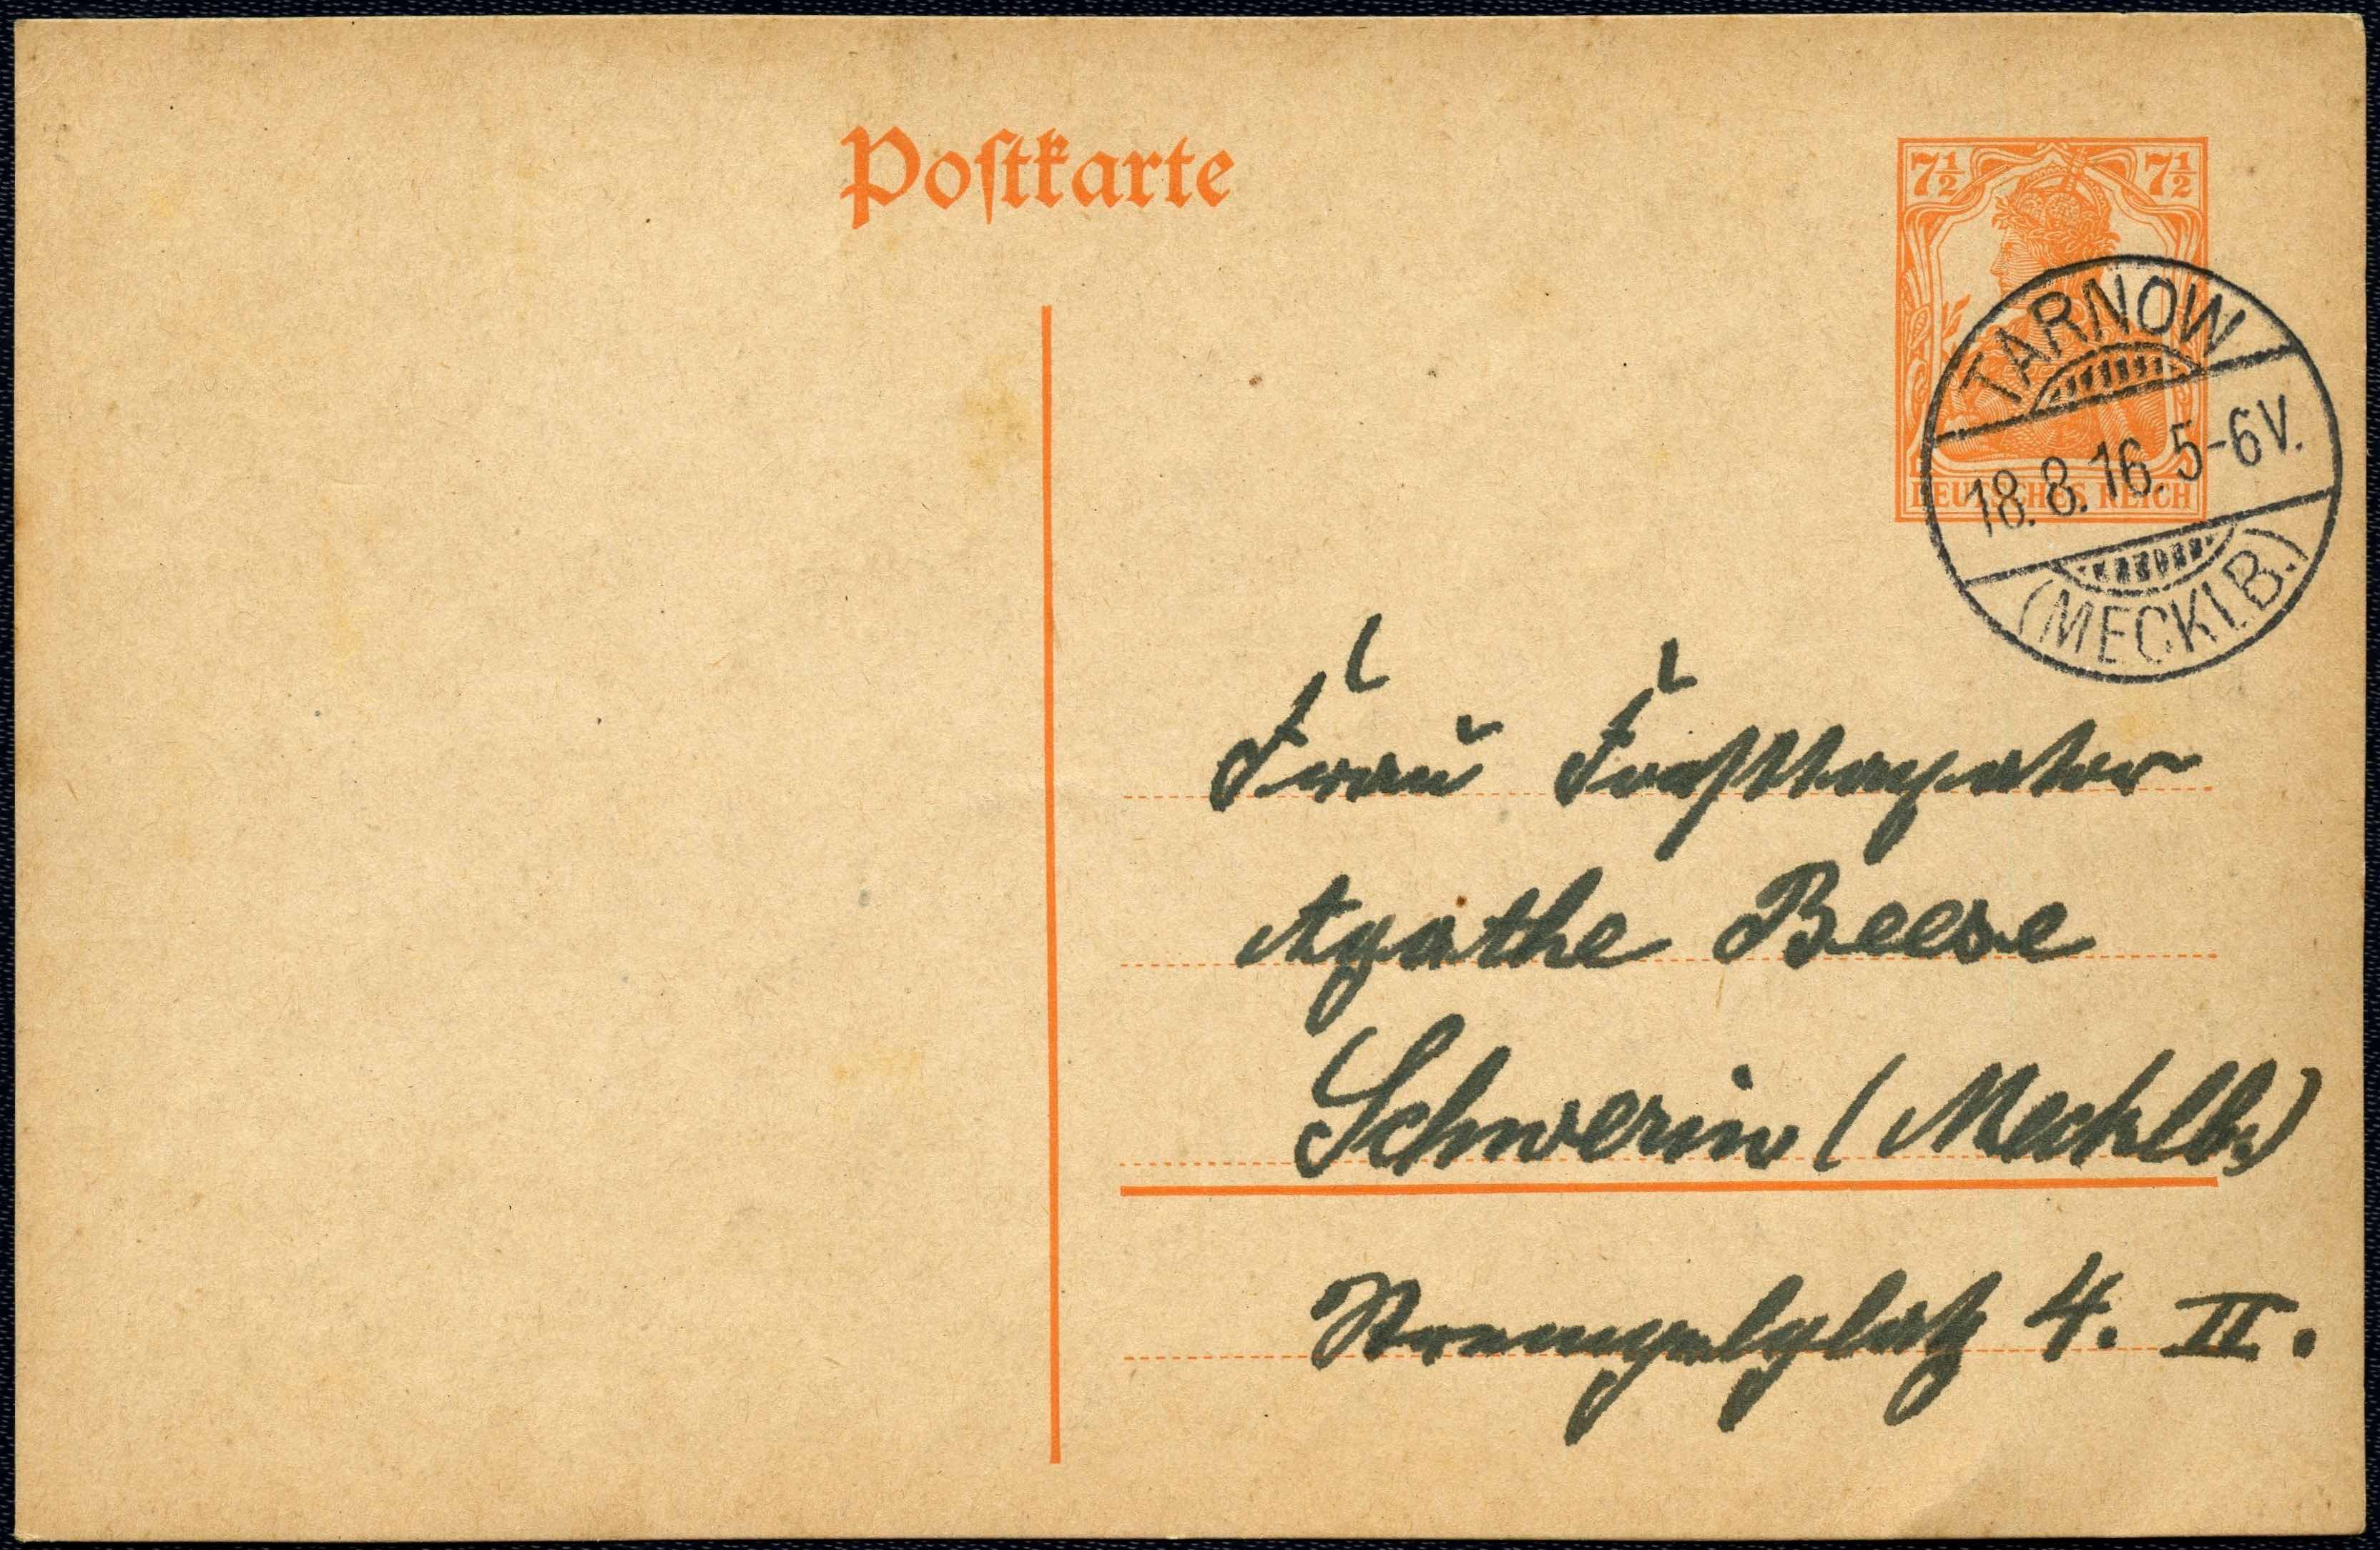 Postkarte
7½ 7½
DEUTSCHES REICH
TARNOW
18.8.16. 5-6V.
(MECKLB.)
Frau Forsttaxator
Agathe Beese
Schwerin (Mecklb.)
Strempelplatz 4. II.